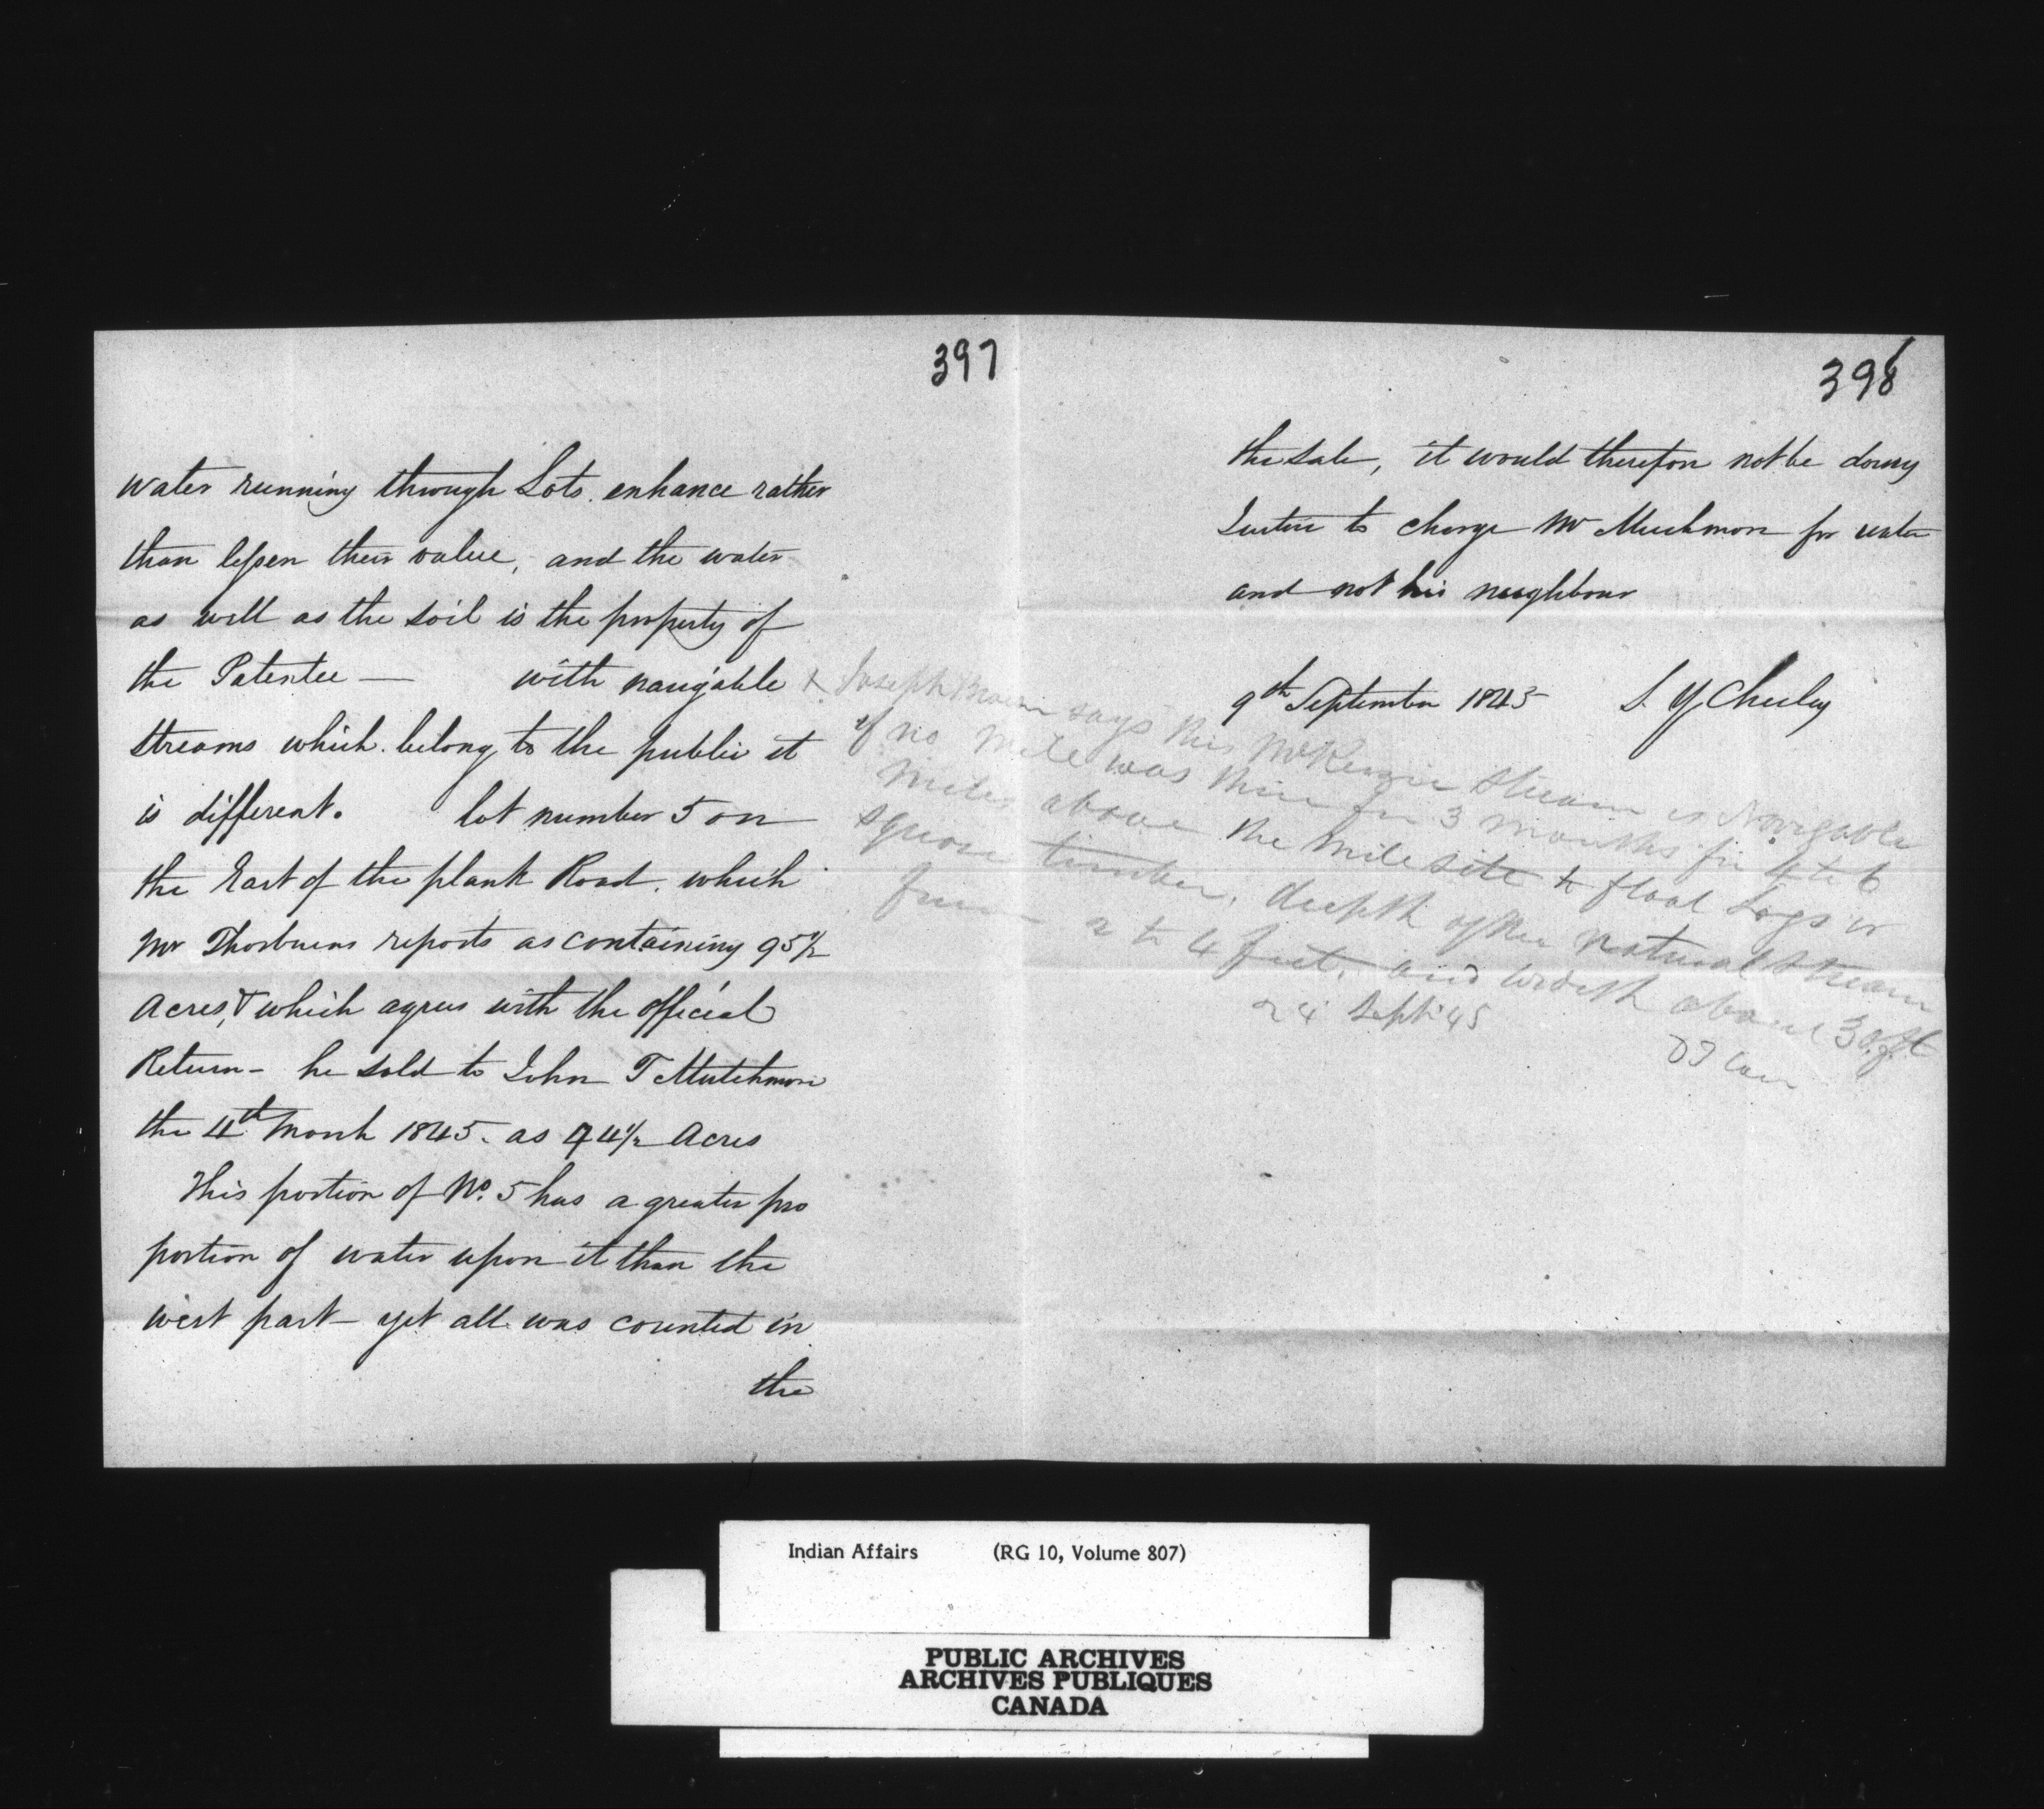 397
water running through Lots. enhance rather
than lessen their value, and the water
as well as the soil is the property of
the Patentee — with navigable
streams which belong to the public it
is different. lot number 5 on
the East of the plank Road. which
Mr Thorburn reports as containing 95 1/2
Acres, & which agrees with the official
Return - he sold to John T Mutchmore
the 4th March 1845. as 94 1/2 Acres
This portion of No. 5 has a greater pro
portion of water upon it than the
west part - yet all was counted in
the
398
the sale, it would therefore not be doing
Justice to charge Mr Muchmore for water
and not his neighbour
9th September 1845
+ Joseph Brown says this McKenzie Stream is Navigable
if no Mile was there for 3 months for 4 to 6
miles above the Mile site to float Logs or
square timber, depth of the natural stream
from 2 to 4 feet, and width about 30 ft
24 Sept 45
Indian Affairs (RG 10, Volume 807)
PUBLIC ARCHIVES
ARCHIVES PUBLIQUES
CANADA